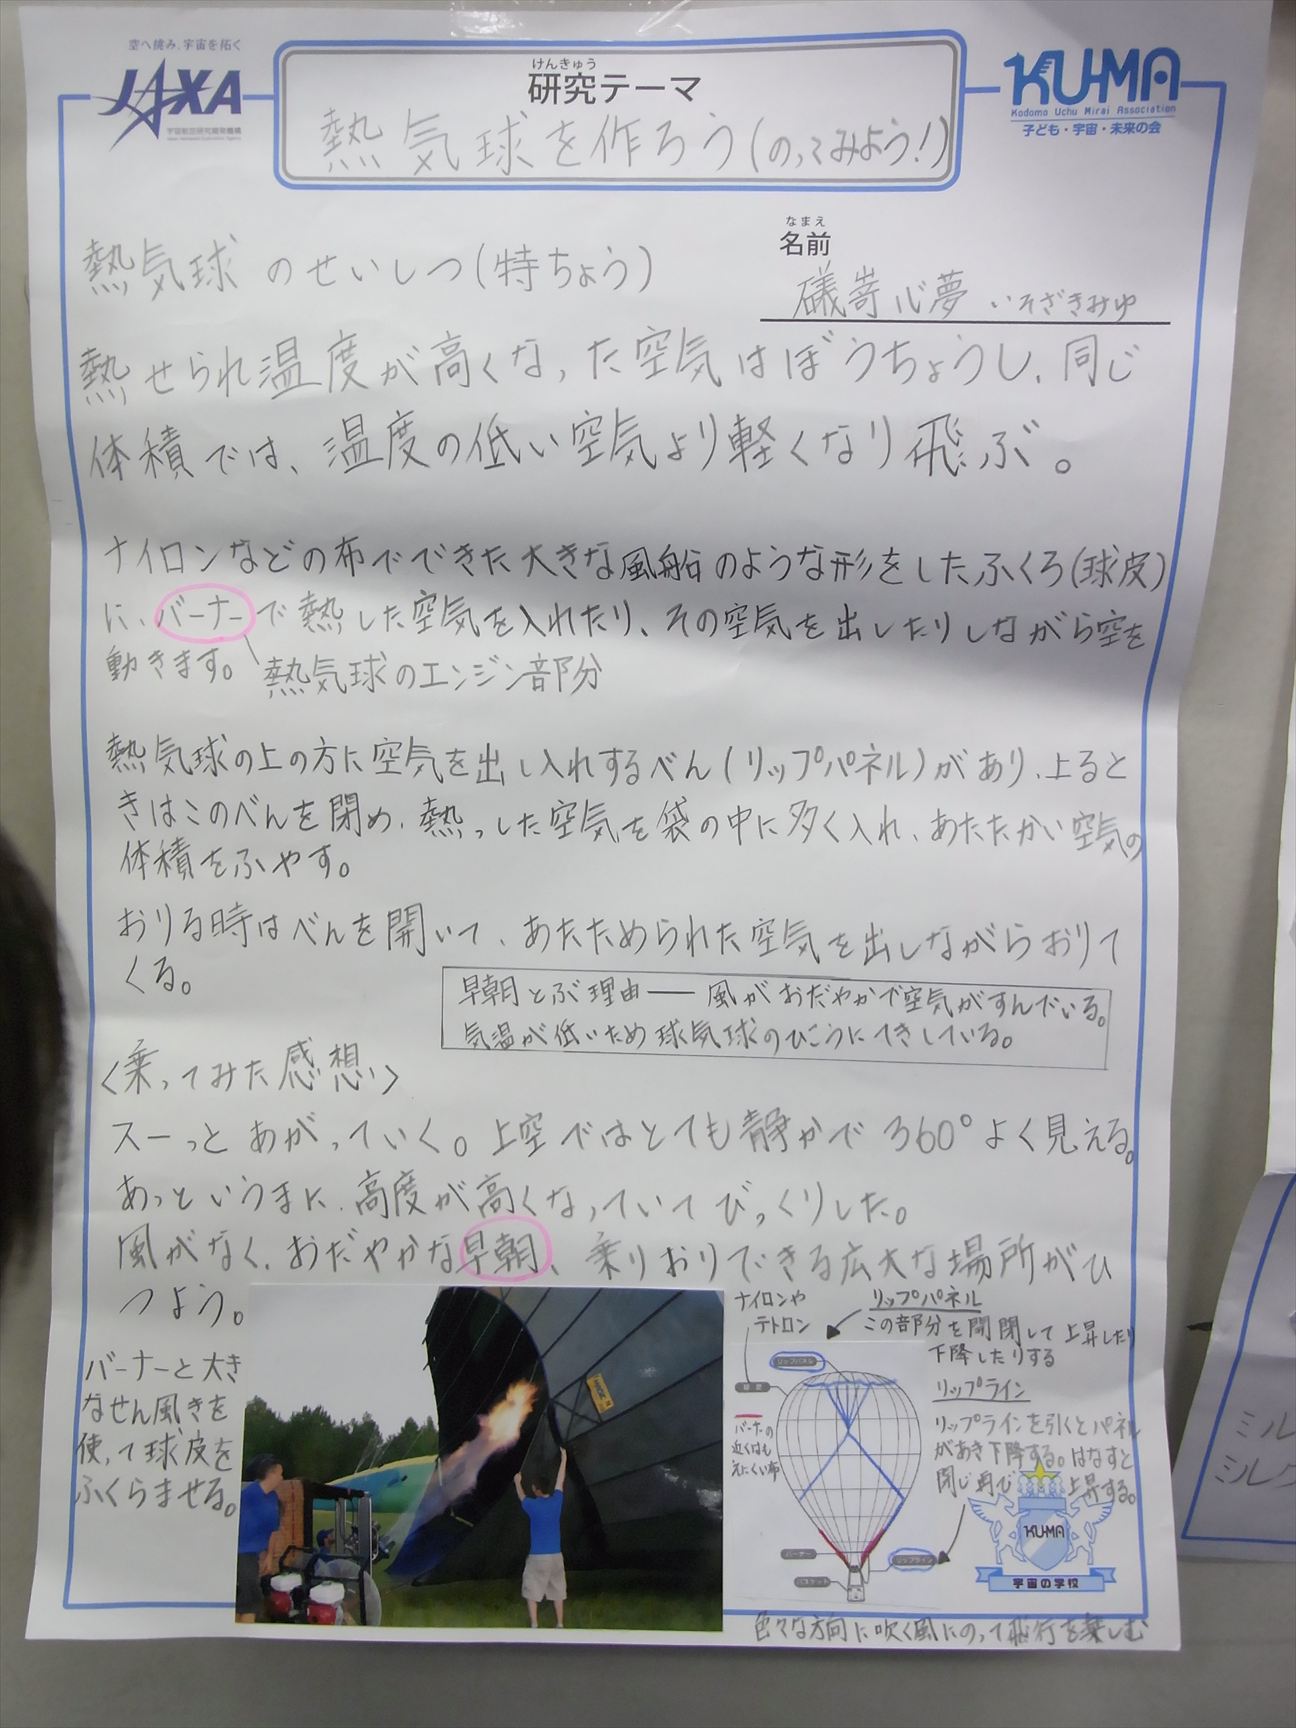 空へ挑み、宇宙を拓く
JAXA
宇宙航空研究開発機構
けんきゅう
研究テーマ
熱気球を作ろう(のってみよう!)
KU-MA
Kodomo Uchu Mirai Association
子ども・宇宙・未来の会
なまえ
名前
礒嵜心夢 いそざきみゆ
熱気球のせいしつ(特ちょう)
熱せられ温度が高くなった空気はぼうちょうし、同じ
体積では、温度の低い空気より軽くなり飛ぶ。
ナイロンなどの布でできた大きな風船のような形をしたふくろ(球皮)
に、バーナーで熱した空気を入れたり、その空気を出したりしながら空を
動きます。
熱気球のエンジン部分
熱気球の上の方に空気を出し入れするべん(リップパネル)があり、上ると
きはこのべんを閉め、熱っした空気を袋の中に多く入れ、あたたかい空気の
体積をふやす。
おりる時はべんを開いて、あたためられた空気を出しながらおりて
くる。
早朝とぶ理由ー風がおだやかで空気がすんでいる。
気温が低いため球気球のひこうにてきしている。
〈乗ってみた感想〉
スーっとあがっていく。上空ではとても静かで360°よく見える。
あっというまに、高度が高くなっていてびっくりした。
風がなく、おだやかな早朝、乗りおりできる広大な場所がひ
つよう。
バーナーと大き
なせん風きを
使って球皮を
ふくらませる。
ナイロンや
テトロン
リップパネル
この部分を開閉して上昇したり
下降したりする
リップパネル
球皮
リップライン
リップラインを引くとパネル
があき下降する。はなすと
閉じ再び上昇する。
バーナーの
近くはも
えにくい布
バーナー
リップライン
バスケット
KU-MA
宇宙の学校
色々な方向に吹く風にのって飛行を楽しむ
ミル
ミルク